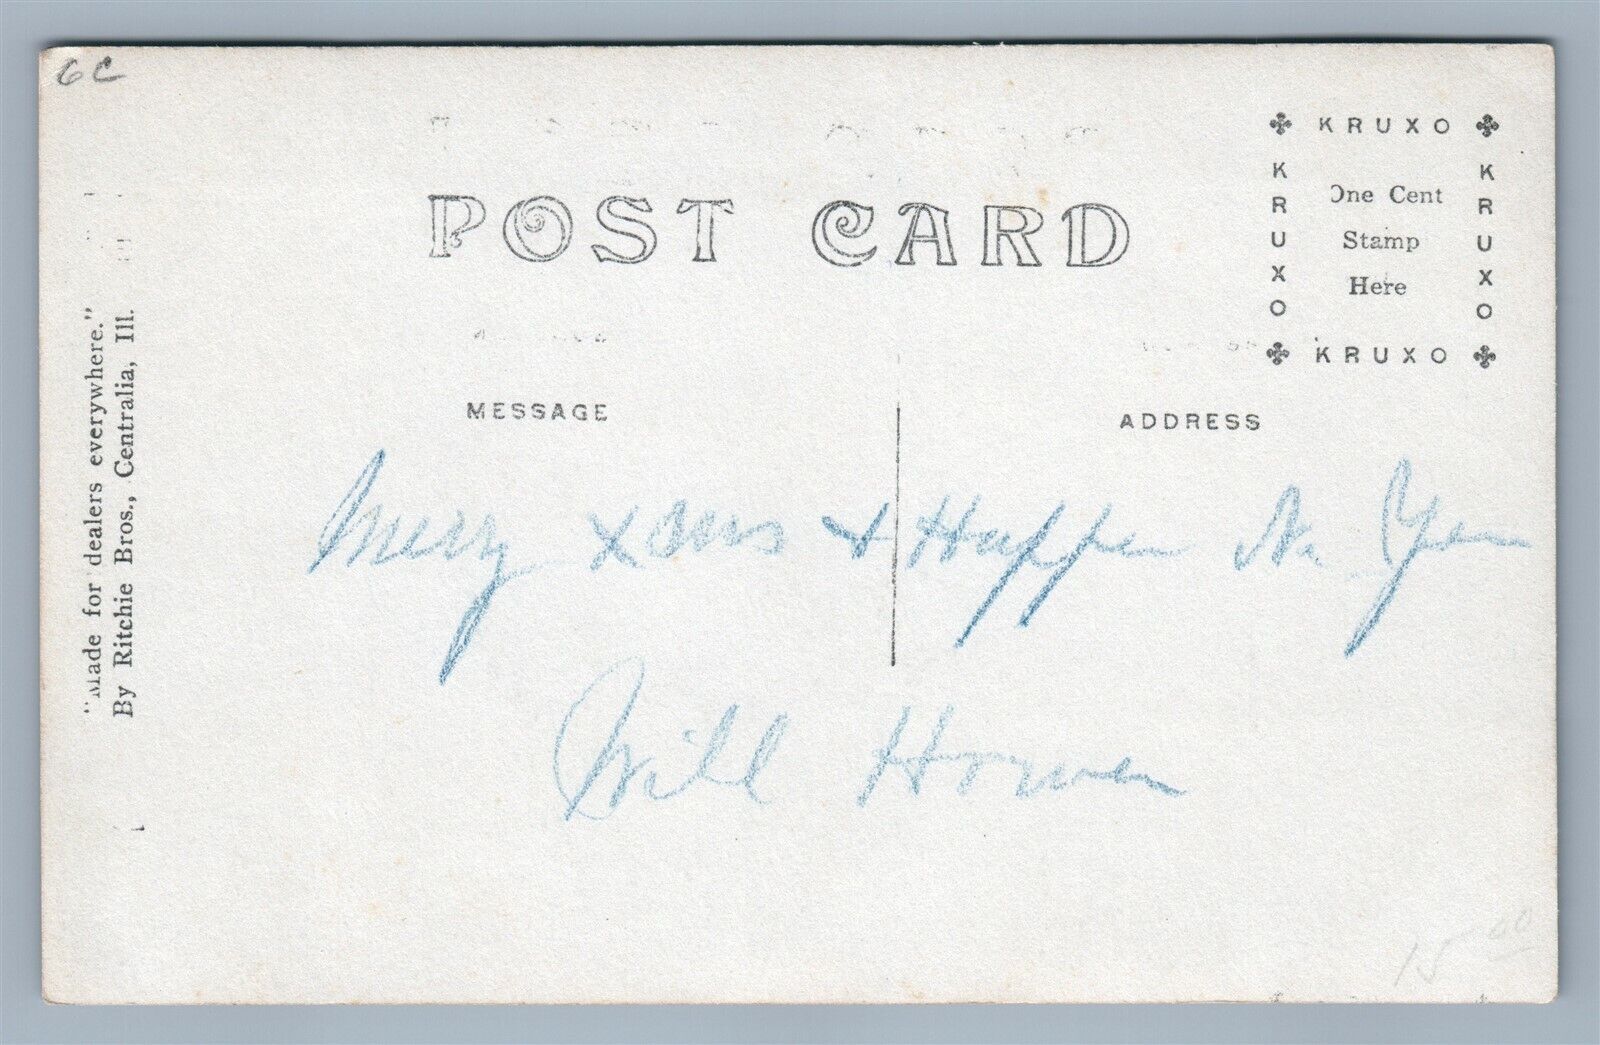 6c
POST CARD
KRUXO
KRUXO
KRUXO
KRUXO
One Cent
Stamp
Here
MESSAGE
ADDRESS
"Made for dealers everywhere."
By Ritchie Bros., Centralia, Ill.
Merry xmas & Happy N. Year
Will
15 00